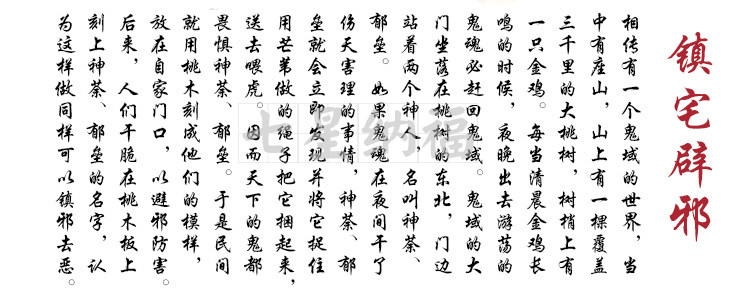 镇宅辟邪
相传有一个鬼域的世界，当
中有座山，山上有一棵覆盖
三千里的大桃树，树梢上有
一只金鸡。每当清晨金鸡长
鸣的时候，夜晚出去游荡的
鬼魂必赶回鬼域。鬼域的大
门坐落在桃树的东北，门边
站着两个神人，名叫神荼、
郁垒。如果鬼魂在夜间干了
伤天害理的事情，神荼、郁
垒就会立即发现并将它捉住
用芒苇做的绳子把它捆起来，
送去喂虎。因而天下的鬼都
畏惧神荼、郁垒。于是民间
就用桃木刻成他们的模样，
放在自家门口，以避邪防害。
后来，人们干脆在桃木板上
刻上神荼、郁垒的名字，认
为这样做同样可以镇邪去恶。
七星纳福